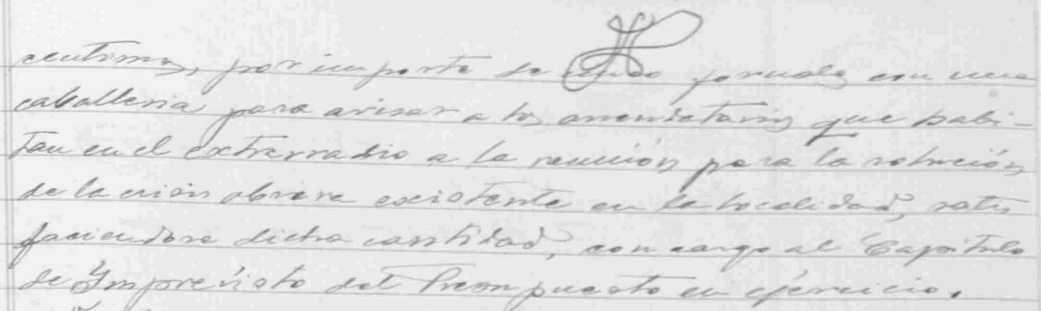 centimos, por importe de jornales con una
caballeria para avisar a los arrendatarios que habi-
tan en el extrarradio a la reunión para la solución
de la crisis obrera existente en la localidad, satis
faciendose dicha cantidad, con cargo al Capitulo
de Imprevisto del Presupuesto en ejercicio.